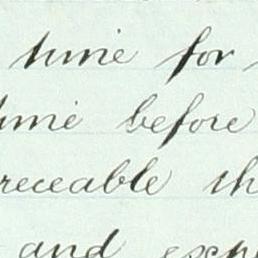 time for
time before
receable th
and exce